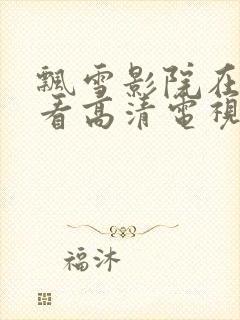 飄雪影院在
看高清電視
福沐